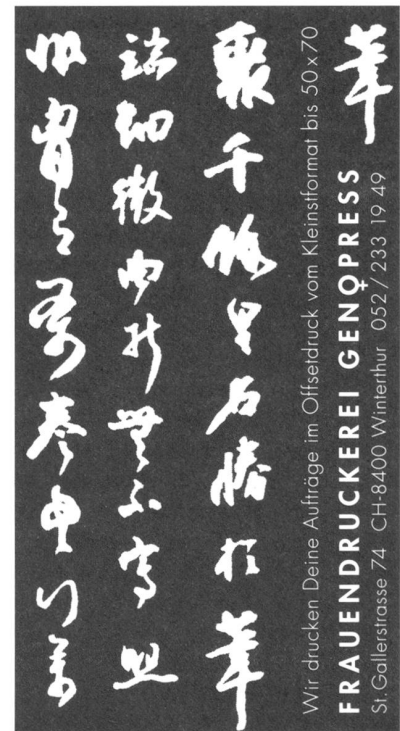 筆
聚千餘里名勝於筆
端細微曲折無不寫照
Wir drucken Deine Aufträge im Offsetdruck vom Kleinstformat bis 50x70
FRAUENDRUCKEREI GENOPRESS
St. Gallerstrasse 74 CH-8400 Winterthur 052/233 19 49